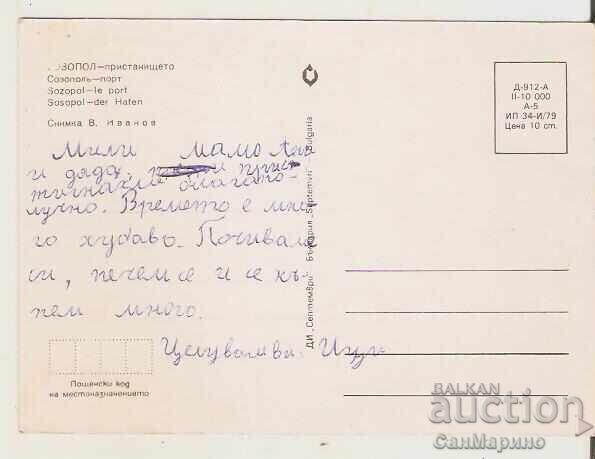 СОЗОПОЛ—пристанището
Созополь—порт
Sozopol—le port
Sosopol—der Hafen
Снимка В. Иванов
Д-912-А
II-10 000
А-5
ИП 34-И/79
Цена 10 ст.
Мили мамо
и дядо, прис-
тигнахме благопо-
лучно. Времето е мно-
го хубаво. Почиваме
си, печем се и се къ-
пем много.
Целувам ви
ДИ „Септември" България „Septemvri" Bulgaria
Пощенски код
на местоназначението
BALKAN
auction
СанМарино